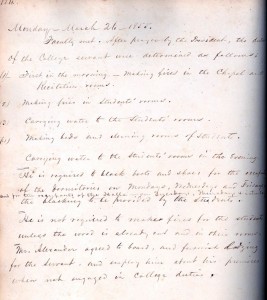 Monday - March 26 - 1855.
Faculty met. After prayer by the President, the
of the College servant were determined as follows.
1st Direct in the morning - Making fires in the Chapel and
Recitation rooms.
2) Making fires in Students' rooms.
Carrying water to the Students' rooms.
Making beds and cleaning rooms of Students.
Carrying water to the Students' rooms in the evening
He is required to black boots and shoes for the
of the Dormitories on Mondays, Wednesdays and Fridays
the blacking to be provided by the students.
He is not required to make fires for the students
unless the wood is already cut and in their rooms.
Mr. Alexander agreed to board, and furnish lodging
for the Servant - and employ him about his premises
when not engaged in College duties.